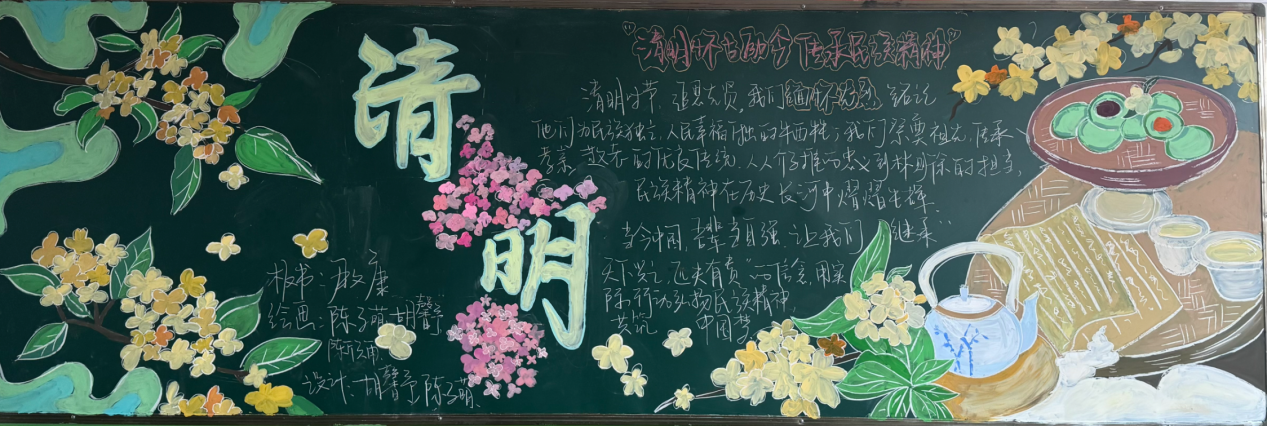 清
明
"清明怀古励今 传承民族精神"
清明时节,追思先贤,我们缅怀先烈
他们为民族独立、人民幸福 牺牲;我们祭奠祖先,传承
孝亲 敬老的优良传统。人人 的担当,
民族精神在历史长河中熠熠生辉.
当今中国, 自强.让我们 继承"
天下兴亡,匹夫有责"的信念,用实
际行动弘扬民族精神
共筑 中国梦
板书:康
绘画:陈 萌 胡馨
陈
设计:胡馨 陈 萌